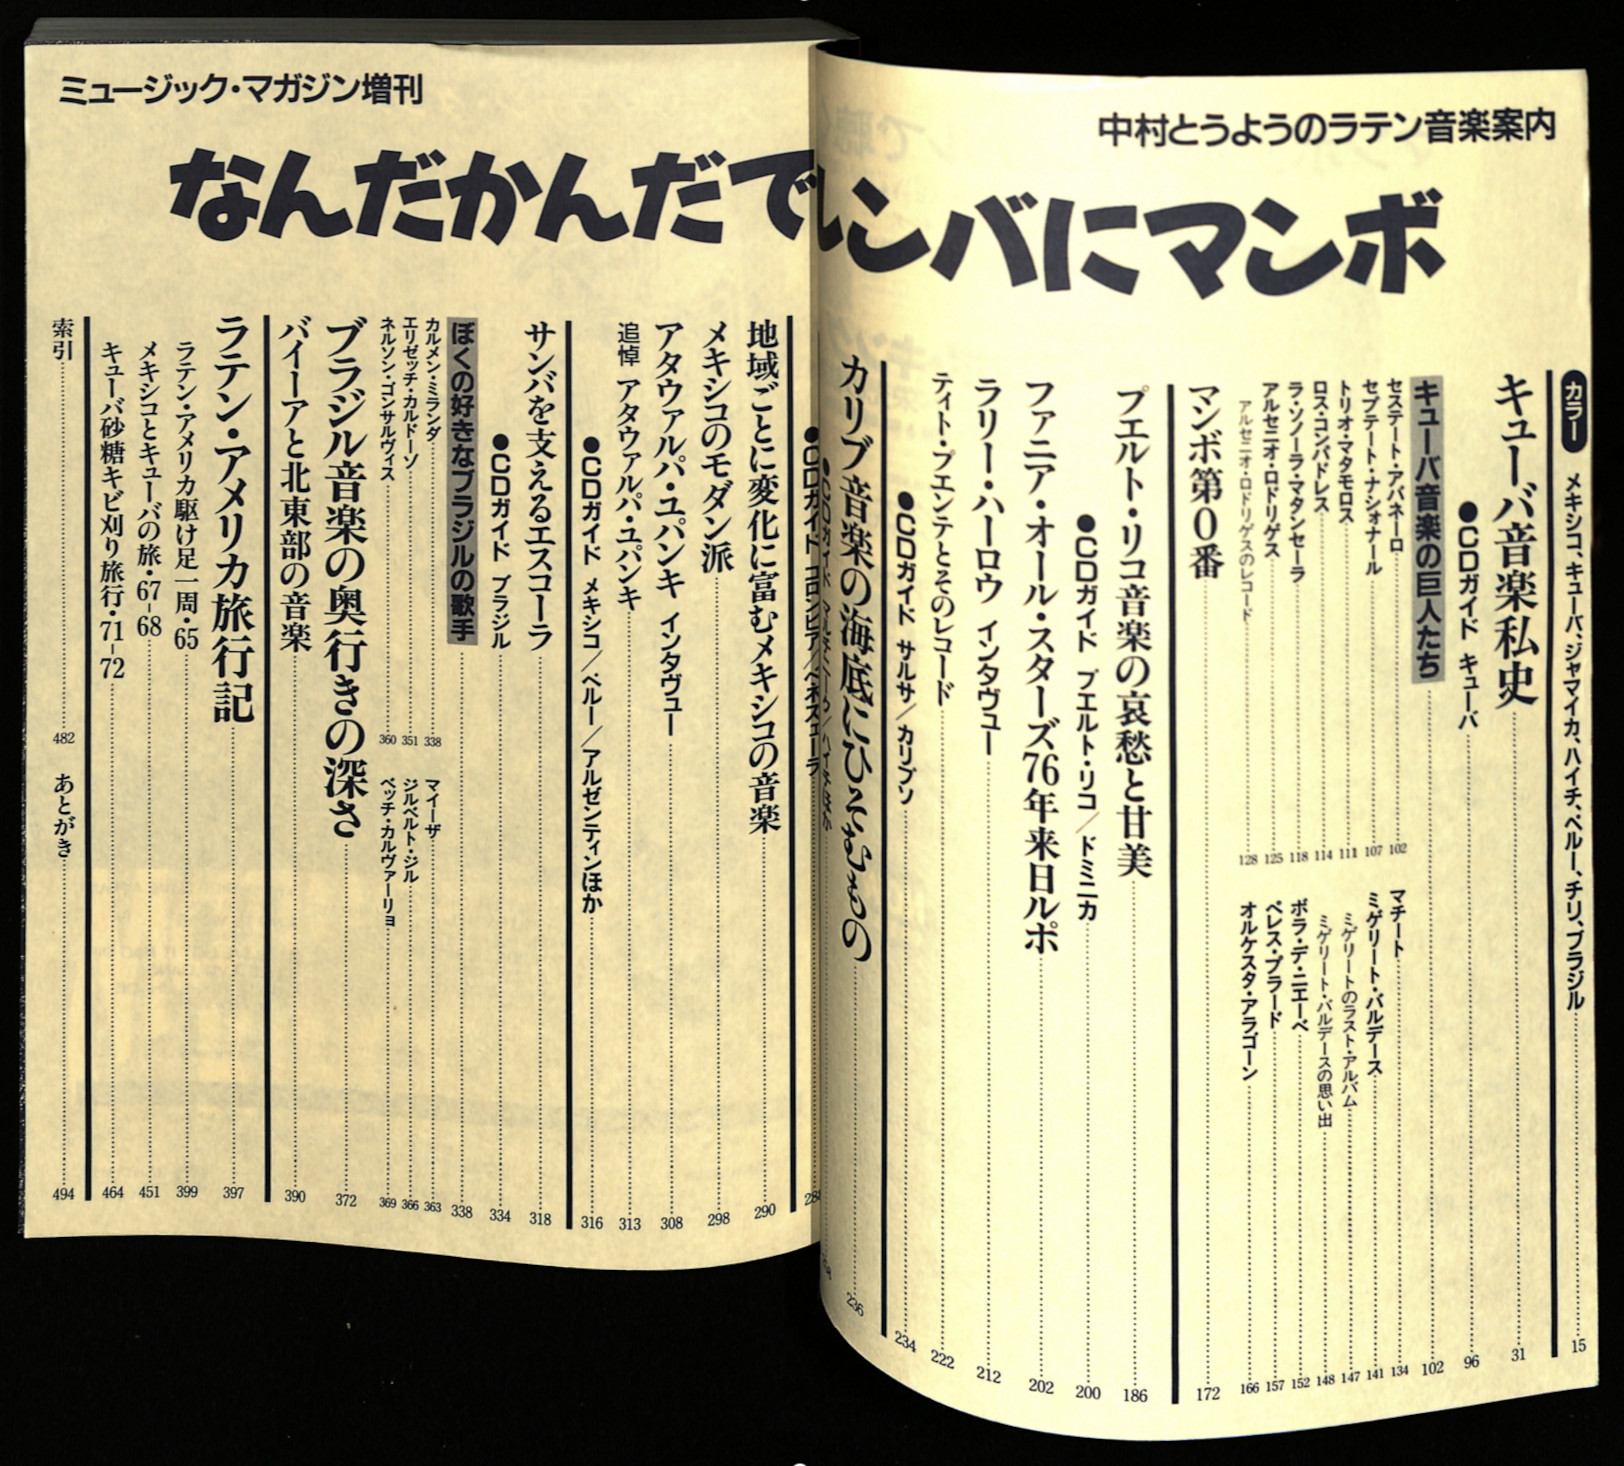 中村とうようのラテン音楽案内
ミュージック・マガジン増刊
なんだかんだでルンバにマンボ
カラー メキシコ、キューバ、ジャマイカ、ハイチ、ペルー、チリ、ブラジル 15
キューバ音楽私史 31
●CDガイド キューバ 96
キューバ音楽の巨人たち 102
セステート・アバネーロ 102
セプテート・ナシォナール 107
トリオ・マタモロス 111
ロス・コンパドレス 114
ラ・ソノーラ・マタンセーラ 118
アルセニオ・ロドリゲス 125
アルセニオ・ロドリゲスのレコード 128
マチート 134
ミゲリート・バルデース 141
ミゲリートのラスト・アルバム 147
ミゲリート・バルデースの思い出 148
ボラ・デ・ニエーベ 152
ペレス・プラード 157
オルケスタ・アラゴーン 166
マンボ第0番 172
プエルト・リコ音楽の哀愁と甘美 186
●CDガイド プエルト・リコ／ドミニカ 200
ファニア・オール・スターズ76年来日ルポ 202
ラリー・ハーロウ インタヴュー 212
ティト・プエンテとそのレコード 222
●CDガイド サルサ／カリプソ 234
カリブ音楽の海底にひそむもの 236
●CDガイド コロンビア／ベネスエーラ
地域ごとに変化に富むメキシコの音楽 290
メキシコのモダン派 298
アタウァルパ・ユパンキ インタヴュー 308
追悼 アタウァルパ・ユパンキ 313
●CDガイド メキシコ／ペルー／アルゼンティンほか 316
サンバを支えるエスコーラ 318
●CDガイド ブラジル 334
ぼくの好きなブラジルの歌手 338
カルメン・ミランダ 338
エリゼッチ・カルドーゾ 351
ネルソン・ゴンサルヴィス 360
マイーザ 363
ジルベルト・ジル 366
ベッチ・カルヴァーリョ 369
ブラジル音楽の奥行きの深さ 372
バイーアと北東部の音楽 390
ラテン・アメリカ旅行記 397
ラテン・アメリカ駆け足一周・65 399
メキシコとキューバの旅・67-68 451
キューバ砂糖キビ刈り旅行・71-72 464
索引 482
あとがき 494